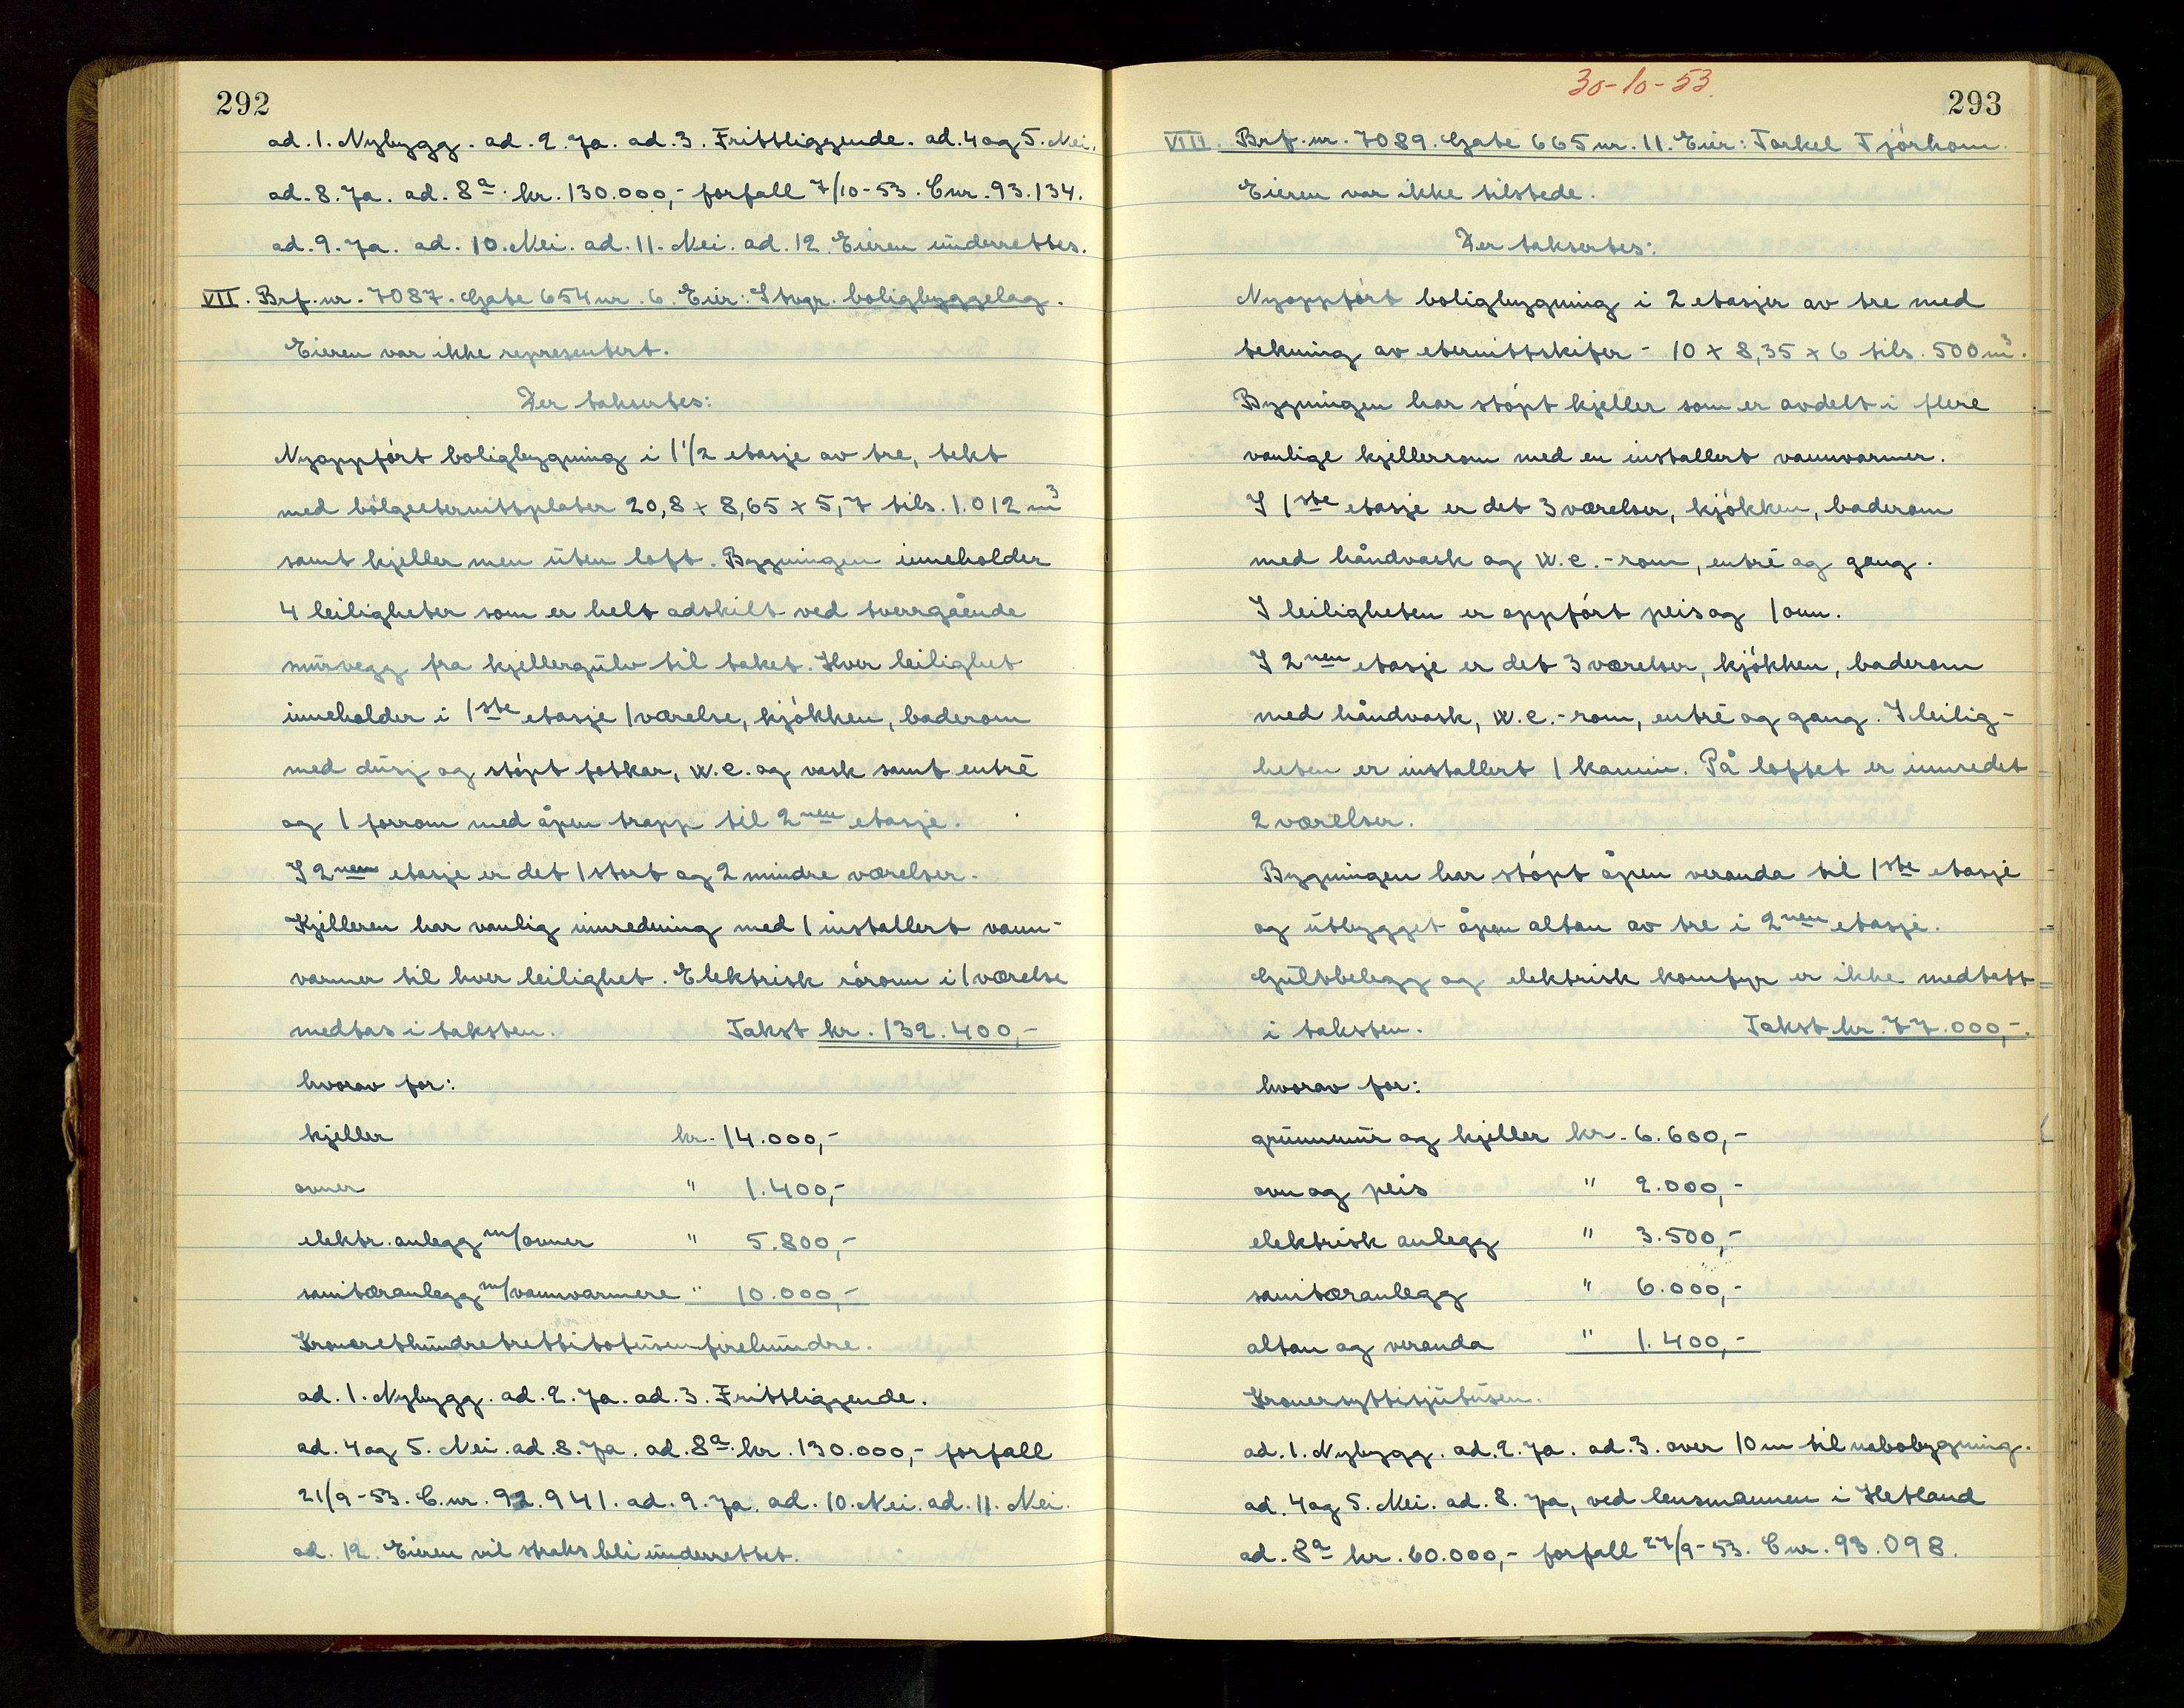 292
ad. 1. Nybygg. ad. 2. Ja. ad. 3. Frittliggende. ad. 4 og 5. Nei.
ad. 8. Ja. ad. 8a. kr. 130.000,- forfall 7/10-53. C nr. 93.134.
ad. 9. Ja. ad. 10. Nei. ad. 11. Nei. ad. 12. Eieren underrettes.
VII. Brf. nr. 7087. Gate 654 nr. 6. Eier: Stvgr. boligbyggelag.
Eieren var ikke representert.
Der taksertes:
Nyoppført boligbygning i 1 1/2 etasje av tre, tekt
med bølgeeternittplater 20,8 x 8,65 x 5,7 tils. 1.012 m3
samt kjeller men uten loft. Bygningen inneholder
4 leiligheter som er helt adskilt ved tverrgående
murvegg fra kjellergulv til taket. Hver leilighet
inneholder i 1ste etasje 1 værelse, kjøkken, baderom
med dusj og støpt fotkar, w.c. og vask samt entré
og 1 forrom med åpen trapp til 2nen etasje.
I 2nen etasje er det 1 stort og 2 mindre værelser.
Kjelleren har vanlig innredning med 1 installert vann-
varmer til hver leilighet. Elektrisk rørovn i 1 værelse
medtas i taksten. Takst kr. 132.400,-
hvorav for:
kjeller kr. 14.000,-
ovner " 1.400,-
elektr. anlegg m/ovner " 5.800,-
sanitæranlegg m/vannvarmere " 10.000,-
Kroneretthundretrettitotusenfirehundre.
ad. 1. Nybygg. ad. 2. Ja. ad. 3. Frittliggende.
ad. 4 og 5. Nei. ad. 8. Ja. ad. 8a. kr. 130.000,- forfall
21/9-53. C. nr. 92.941. ad. 9. Ja. ad. 10. Nei. ad. 11. Nei.
ad. 12. Eieren vil straks bli underrettet.
30-10-53.
293
VIII. Brf. nr. 7089. Gate 665 nr. 11. Eier: Torkel Tjørhom.
Eieren var ikke tilstede.
Der taksertes:
Nyoppført boligbygning i 2 etasjer av tre med
tekning av eternittskifer - 10 x 8,35 x 6 tils. 500 m3.
Bygningen har støpt kjeller som er avdelt i flere
vanlige kjellerrom med en installert vannvarmer.
I 1ste etasje er det 3 værelser, kjøkken, baderom
med håndvask og w.c.-rom, entré og gang.
I leiligheten er oppført peis og 1 ovn.
I 2nen etasje er det 3 værelser, kjøkken, baderom
med håndvask, w.c.-rom, entré og gang. I leilig-
heten er installert 1 kamin. På loftet er innredet
2 værelser.
Bygningen har støpt åpen veranda til 1ste etasje
og utbygget åpen altan av tre i 2nen etasje.
Gulvbelegg og elektrisk komfyr er ikke medtatt
i taksten. Takst kr. 77.000,-.
hvorav for:
grunnmur og kjeller kr. 6.600,-
ovn og peis " 2.000,-
elektrisk anlegg " 3.500,-
sanitæranlegg " 6.000,-
altan og veranda " 1.400,-
Kronersyttisjutusen.
ad. 1. Nybygg. ad. 2. Ja. ad. 3. over 10 m til nabobygning.
ad. 4 og 5. Nei. ad. 8. Ja, ved lensmannen i Hetland
ad. 8a kr. 60.000,- forfall 27/9-53. C nr. 93.098.